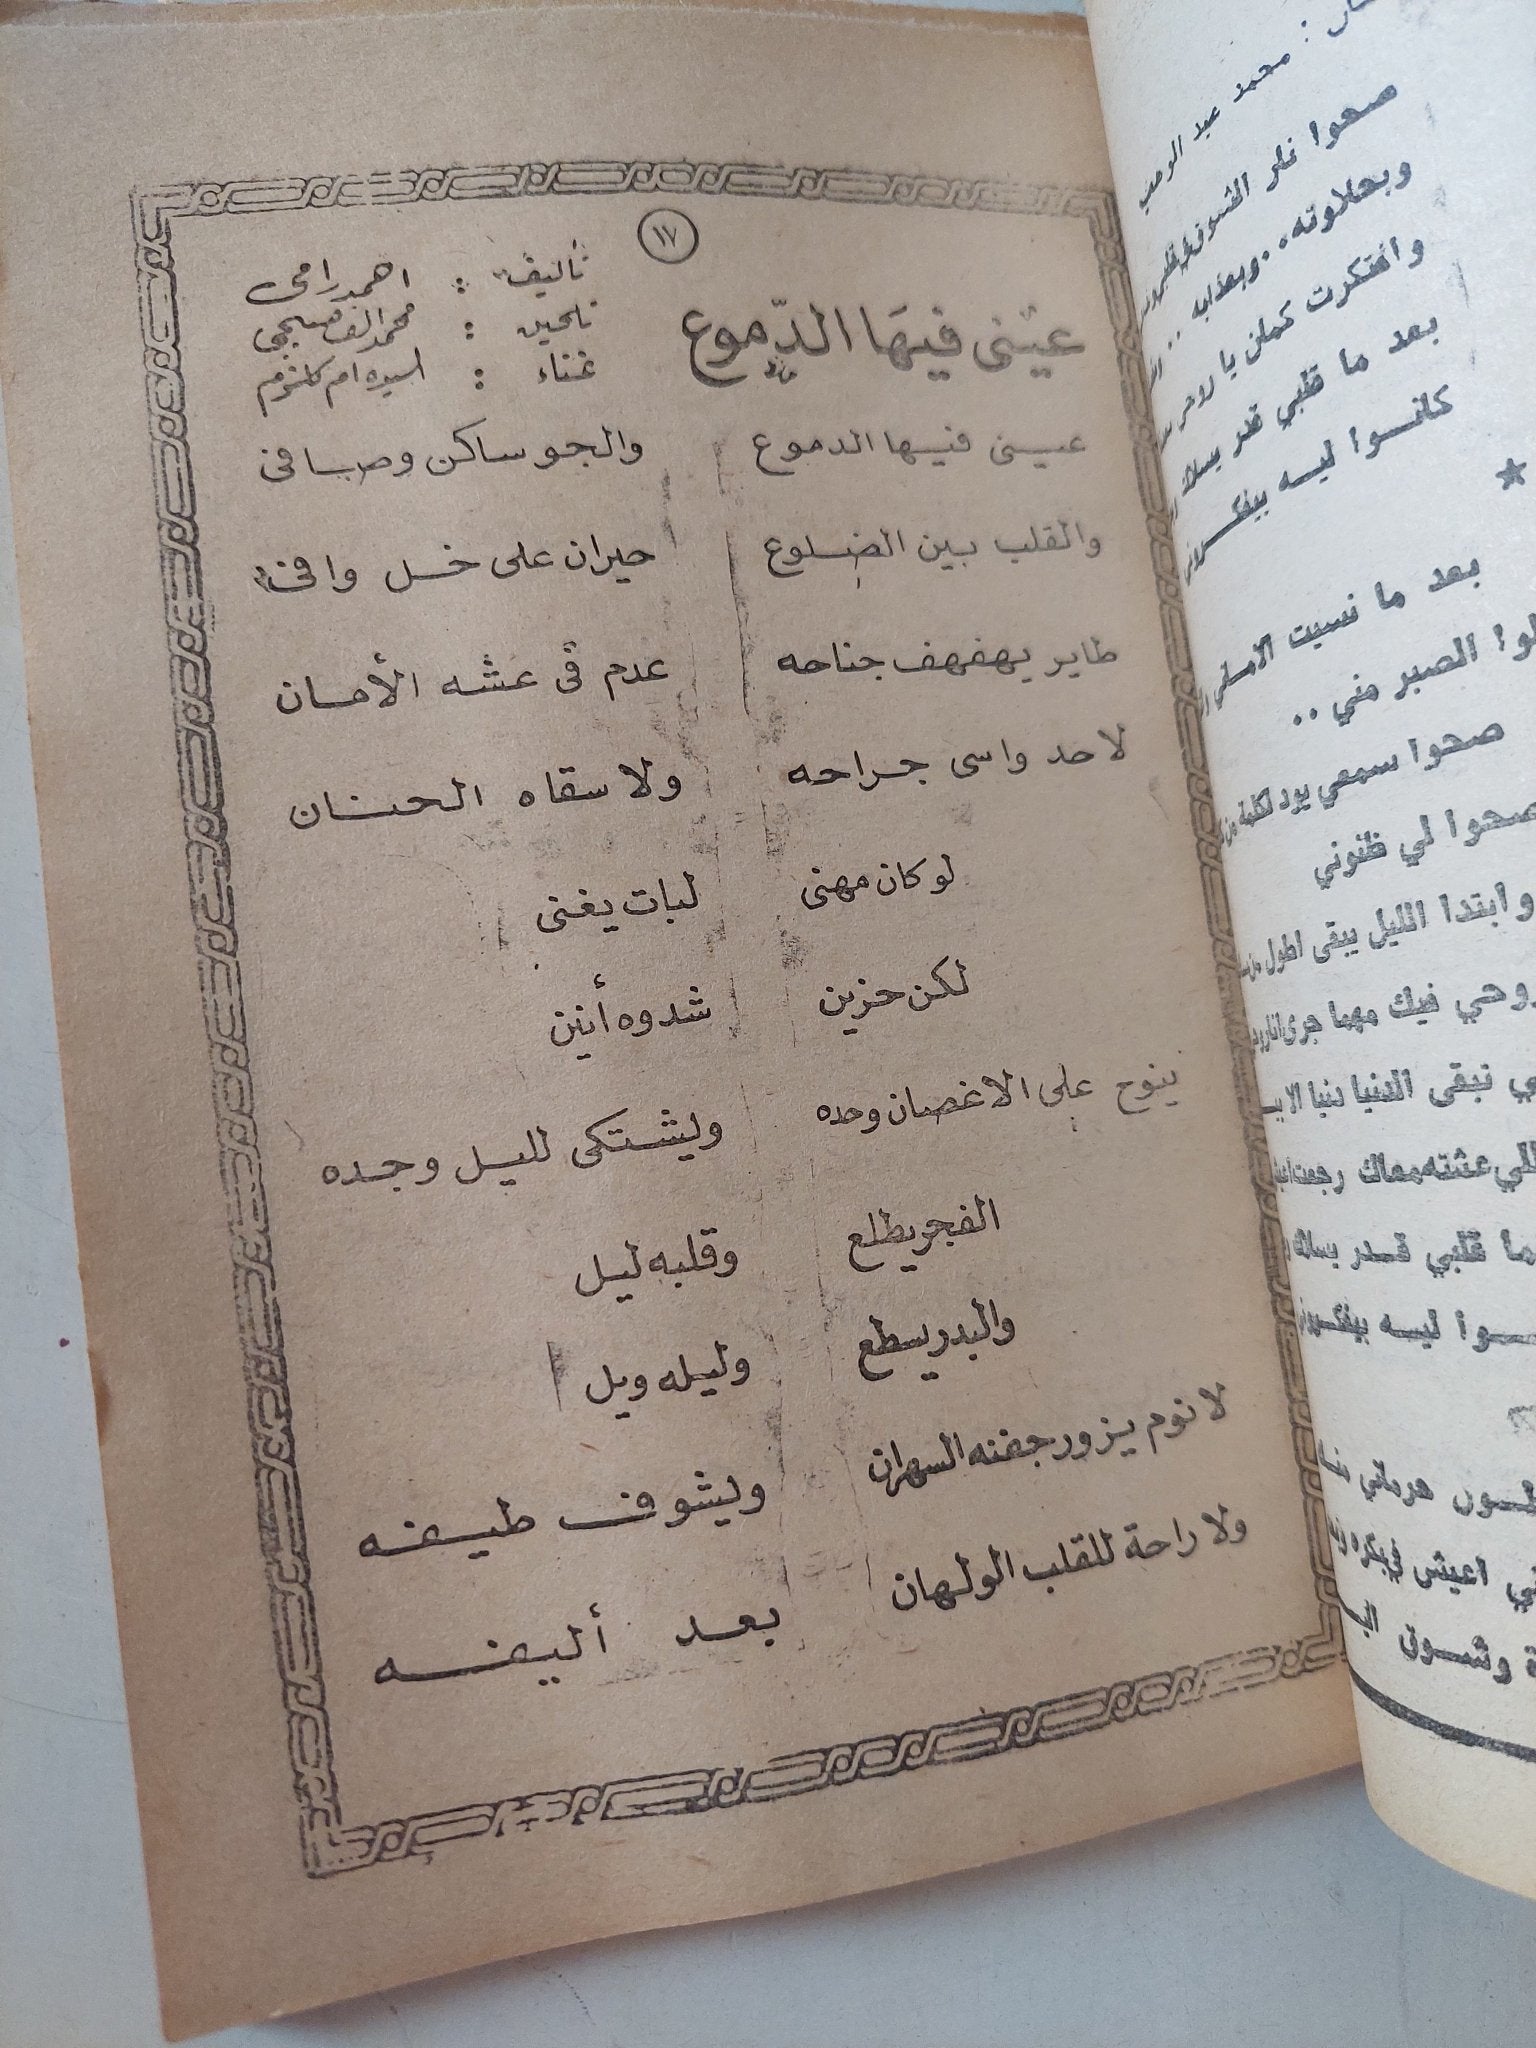 ١٧
عيني فيها الدّموع
تأليف : احمد رامى
تلحين : محمد القصبجى
غناء : السيده ام كلثوم
عينى فيها الدموع والجو ساكن وصافى
والقلب بين الضلوع حيران على خل وافى
طاير يهفهف جناحه عدم فى عشه الأمان
لاحد واسى جراحه ولا سقاه الحنان
لو كان مهنى لبات يغنى
لكن حزين شدوه أنين
ينوح على الاغصان وحده ويشتكى لليل وجده
الفجر يطلع وقلبه ليل
والبدر يسطع وليله ويل
لا نوم يزور جفنه السهران ويشوف طيفه
ولا راحة للقلب الولهان بعد أليفه
: محمد عبد الوهاب
صحوا نار الشوق
وبحلاوته .. وبعذابه ..
وافتكرت كمان يا روحى
بعد ما قلبي قدر يسلاك
كانوا ليه بيفكرونى
★
بعد ما نسيت الامانى
الصبر مني ..
صحوا سمعي يود لكلمة
صحوا لي ظنوني
وابتدا الليل يبقى اطول
روحي فيك مهما جرى
نبقى الدنيا دنيا
عشته معاك رجعت
ما قلبي قدر يسلاك
ليه بيفكرونى
اعيش في بكره
وشوق